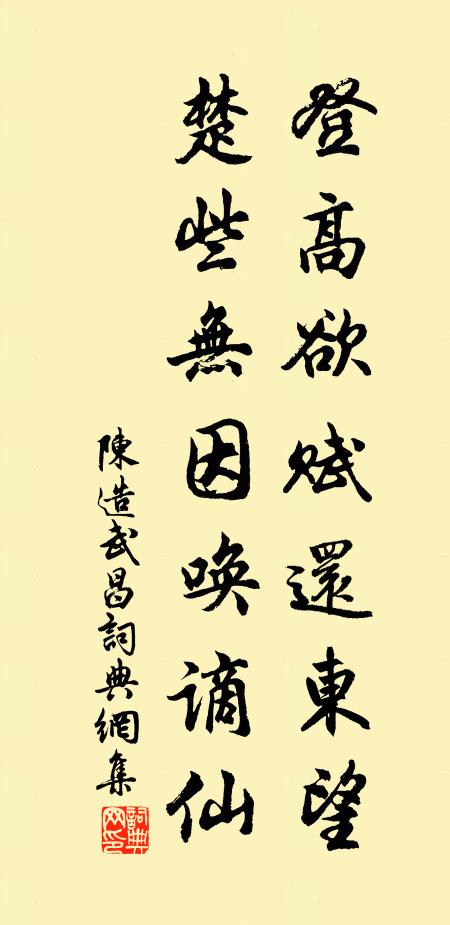 登高欲賦還東望
楚些無因喚謫仙
陳造武昌詞典網集
詞典網印